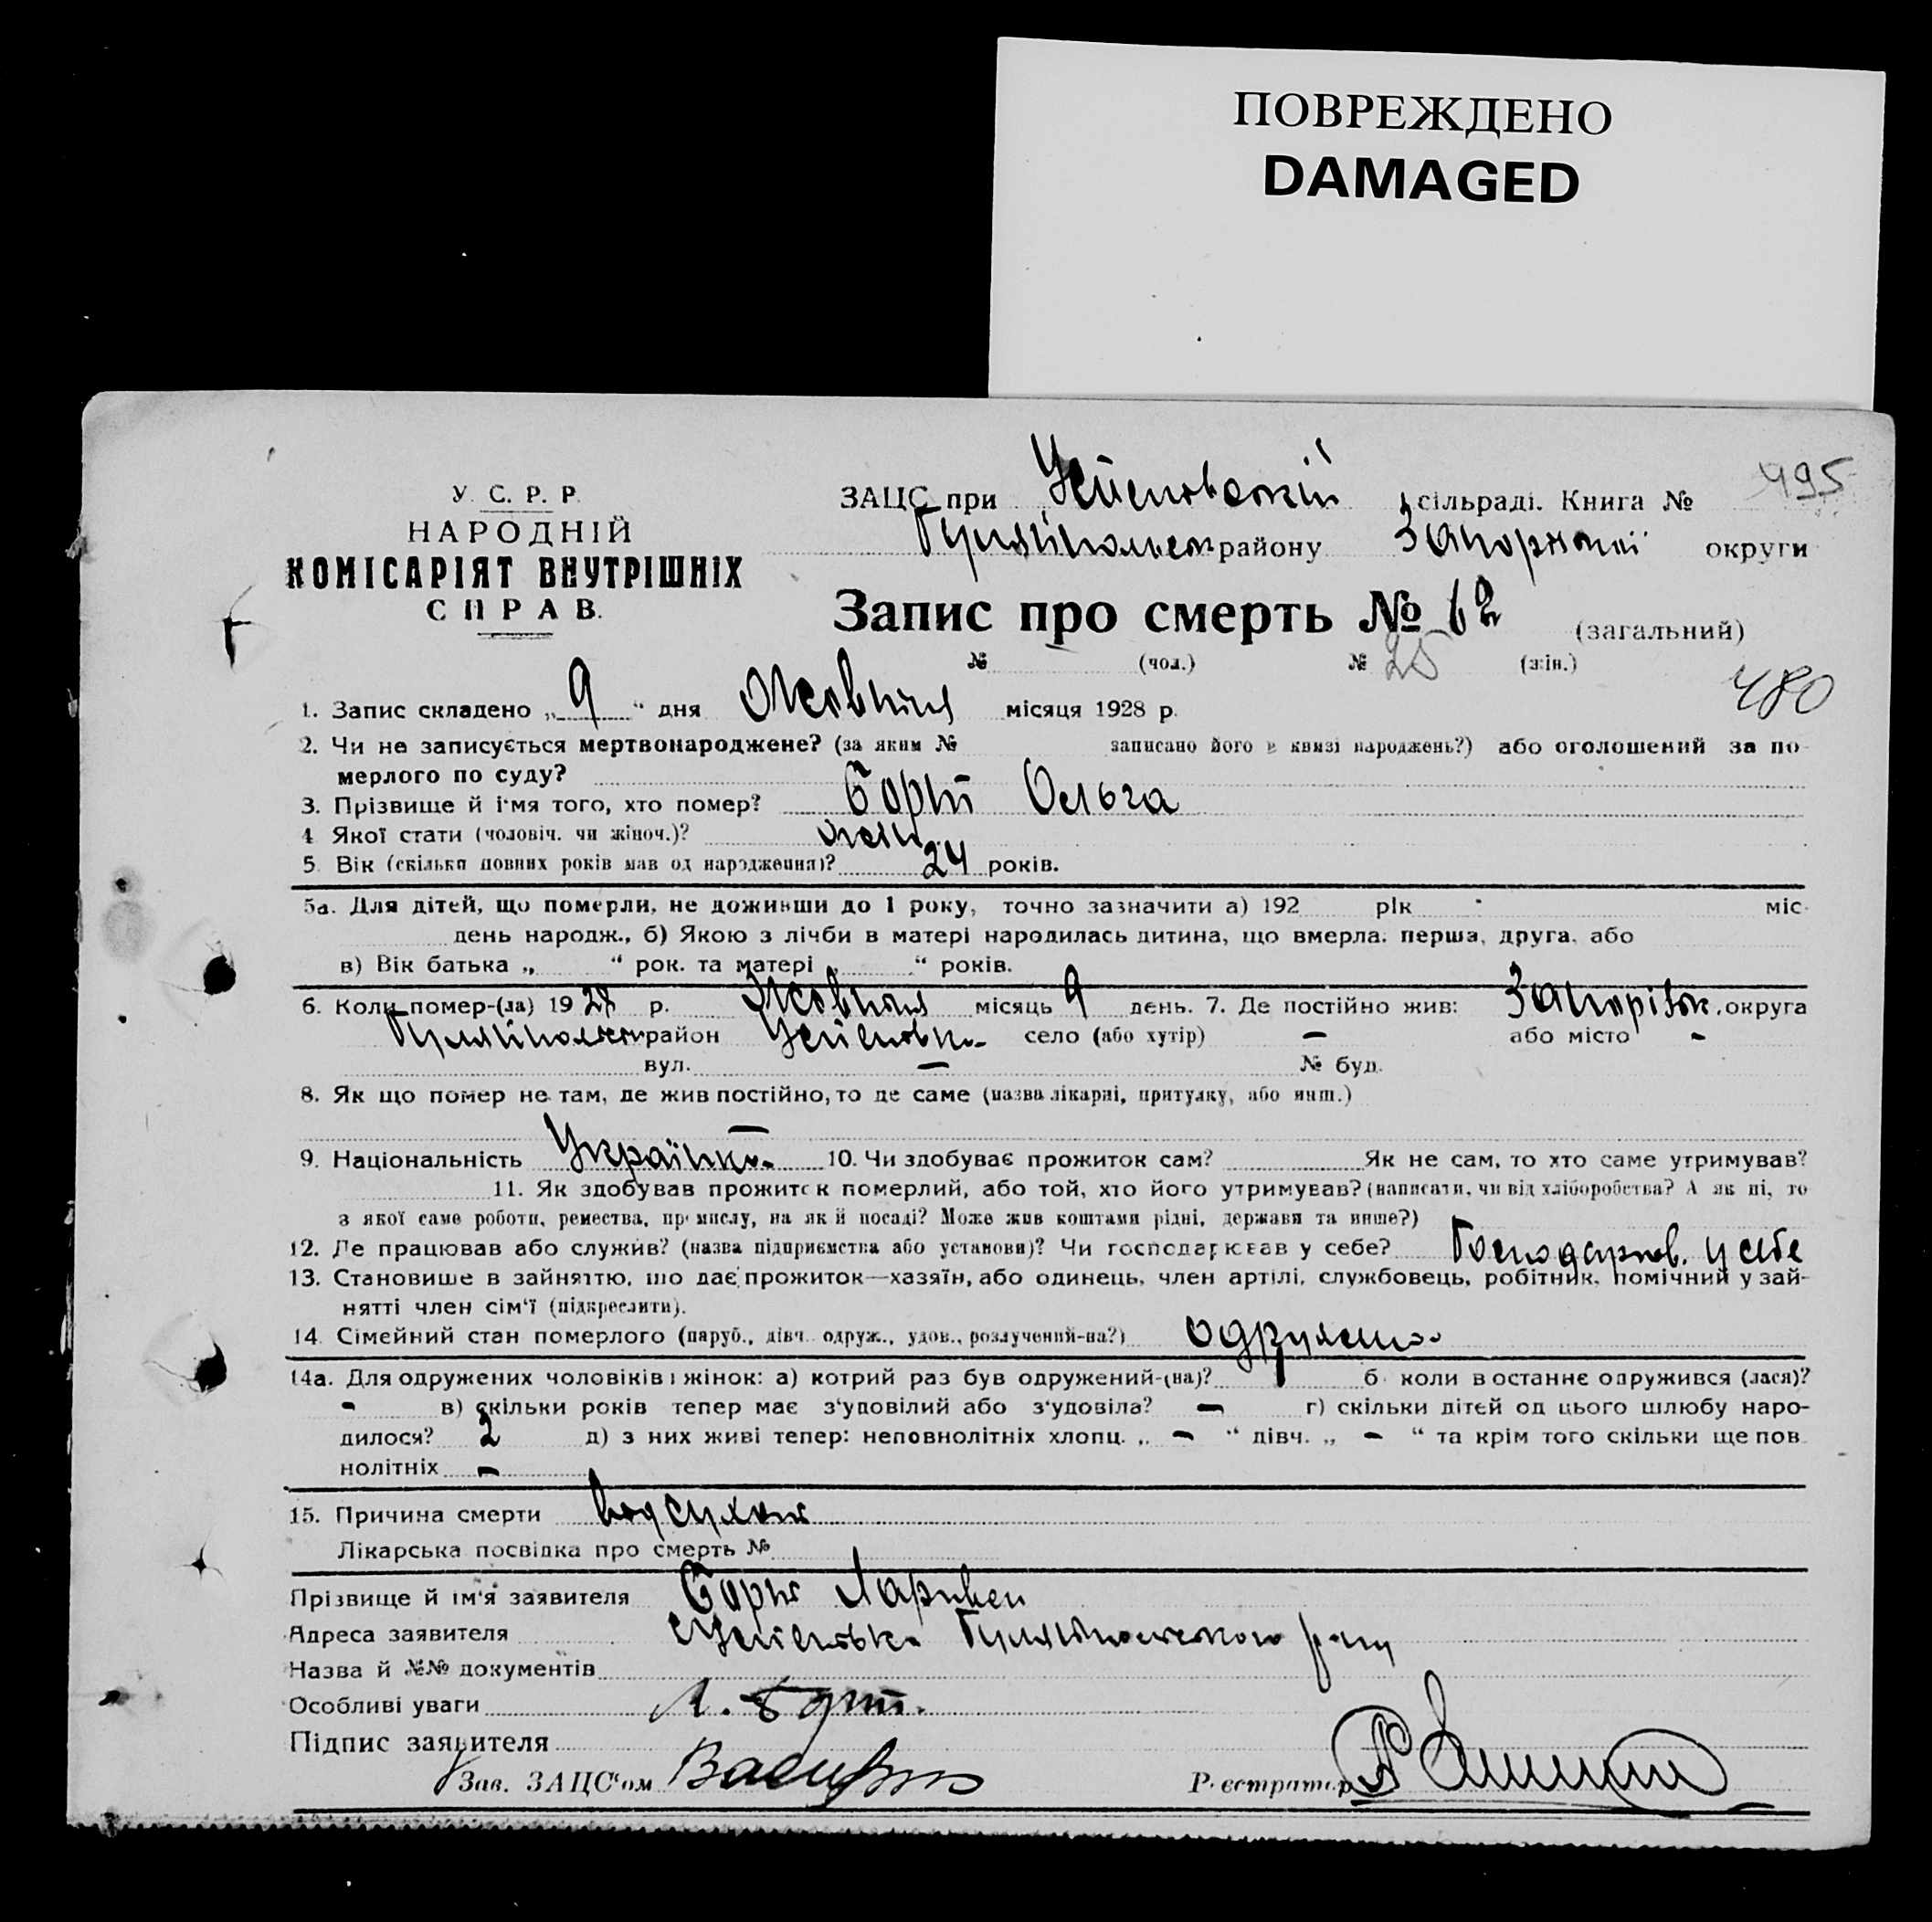 ПОВРЕЖДЕНО
DAMAGED
495
У. С. Р. Р.
НАРОДНІЙ
КОМІСАРІЯТ ВНУТРІШНІХ
СПРАВ.
ЗАЦС при Успеновській сільраді. Книга №
Гуляйпольськ району Запорізької округи
Запис про смерть № 62 (загальний)
№ (чол.) № 25 (жін.)
480
1. Запис складено „ 9 “ дня Жовтня місяця 1928 р.
2. Чи не записується мертвонароджене? (за яким № записано його в книзі народжень?) або оголошений за по-
мерлого по суду?
3. Прізвище й ім'я того, хто помер? Борт Ольга
4 Якої стати (чоловіч. чи жіноч.)? жін.
5. Вік (скільки повних років мав од народження)? 24 років.
5а. Для дітей, що померли, не доживши до 1 року, точно зазначити а) 192 рік міс-
день народж., б) Якою з лічби в матері народилась дитина, що вмерла: перша, друга, або
в) Вік батька „ “ рок. та матері „ “ років.
6. Коли помер-(ла) 1928 р. Жовтня місяць 9 день. 7. Де постійно жив: Запоріжк. округа
Гуляйпольськ район Успеновка село (або хутір) — або місто -
вул. — № буд.
8. Як що помер не там, де жив постійно, то де саме (назва лікарні, притулку, або инш.)
—
9. Національність Українка 10. Чи здобуває прожиток сам? Як не сам, то хто саме утримував?
11. Як здобував прожиток померлий, або той, хто його утримував? (написати, чи від хліборобства? А як ні, то
з якої саме роботи, ремества, промислу, на якій посаді? Може жив коштами рідні, держави та инше?)
12. Де працював або служив? (назва підприємства або установи)? Чи господарював у себе? Господарюв. у себе
13. Становише в зайняттю, що дає прожиток—хазяїн, або одинець, член артілі, службовець, робітник, помічний у зай-
нятті член сім'ї (підкреслити).
14. Сімейний стан померлого (паруб., дівч. одруж., удов., розлучений-на?) одружена
14а. Для одружених чоловіків і жінок: а) котрий раз був одружений-(на)? 1 б) коли востаннє одружився (лася)?
- в) скільки років тепер має з'уповілий або з'удовіла? — г) скільки дітей од цього шлюбу наро-
дилося? 2 д) з них живі тепер: неповнолітніх хлопц. „ — “ дівч. „ — “ та крім того скільки ще пов-
нолітніх —
15. Причина смерти
Лікарська посвідка про смерть №
Прізвище й ім'я заявителя Борт
Адреса заявителя Успеновка Гуляйпольського р-ну
Назва й №№ документів
Особливі уваги Л. Борт.
Підпис заявителя
Зав. ЗАЦС'ом
Реєстратор